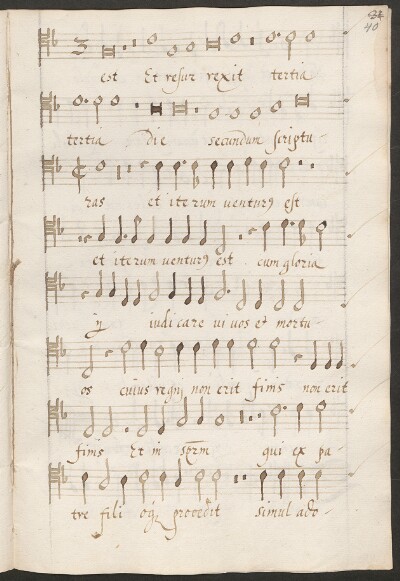 34
40
est Et resur rexit tertia
tertia die secundum scriptu-
ras et iterum venturꝰ est
et iterum venturꝰ est cum gloria
ij iudicare vivos et mortu-
os cuius regnj non erit finis non erit
finis Et in spm̄ qui ex pa-
tre filioqꝫ procedit simul ado-